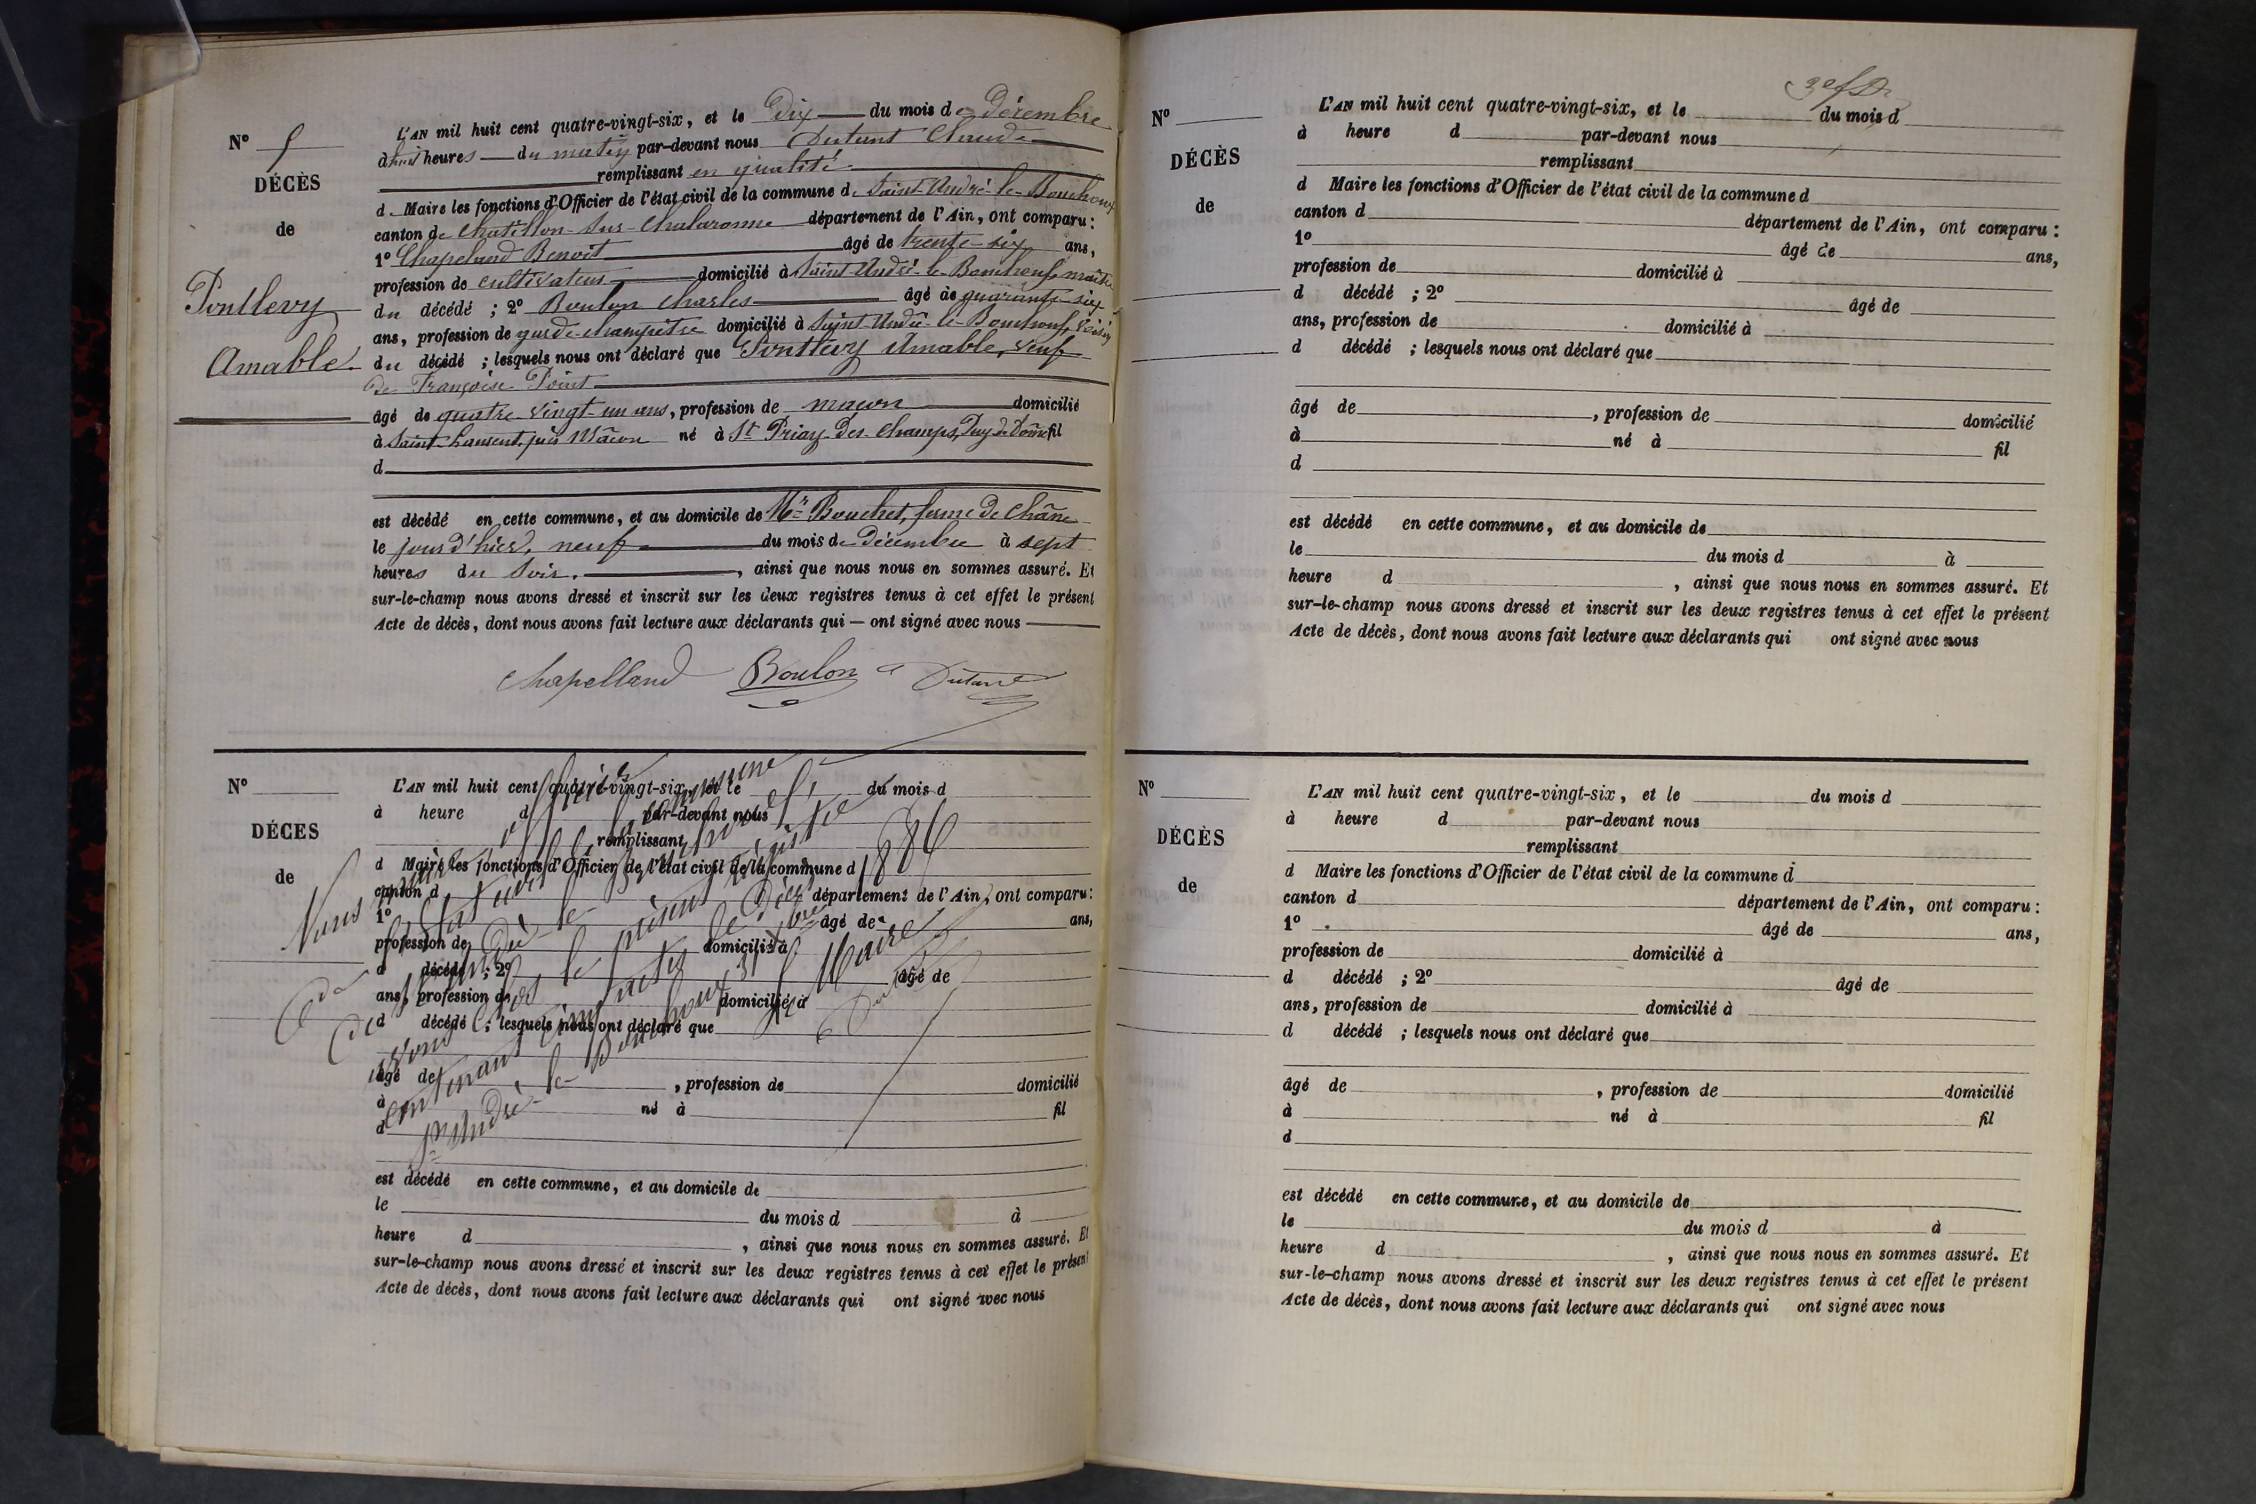 N° 5
DÉCÈS
de
Pontlevy
Amable
L'AN mil huit cent quatre-vingt-six, et le Dix du mois de décembre
à huit heures du matin par-devant nous Dutant Claude
remplissant en qualité
de Maire les fonctions d'Officier de l'état civil de la commune de Saint-André-le-Bouchoux
canton de Chatillon-sur-Chalaronne département de l'Ain, ont comparu :
1° Chapeland Benoit âgé de trente-six ans,
profession de cultivateur domicilié à Saint André-le-Bouchoux, maître
du décédé ; 2° Boulon Charles âgé de quarante-six
ans, profession de garde-champêtre domicilié à Saint-André-le-Bouchoux, voisin
du décédé ; lesquels nous ont déclaré que Pontlevy Amable, veuf
de Françoise Point
âgé de quatre-vingt-un ans, profession de maçon domicilié
à Saint-Laurent, près Mâcon né à St Priay-Des-Champs, Puy-de-Dôme fil
d
est décédé en cette commune, et au domicile de Mr Bouchet, ferme de Châne
le jour d'hier, neuf du mois de décembre à sept
heures du soir. , ainsi que nous nous en sommes assuré. Et
sur-le-champ nous avons dressé et inscrit sur les deux registres tenus à cet effet le présent
Acte de décès, dont nous avons fait lecture aux déclarants qui — ont signé avec nous
Chapelland Boulon Dutant
N°
DÉCES
de
L'AN mil huit cent quatre-vingt-six, et le du mois d
à heure d par-devant nous
remplissant
d Maire les fonctions d'Officier de l'état civil de la commune d
canton d département de l'Ain, ont comparu :
1° âgé de ans,
profession de domicilié à
d décédé ; 2° âgé de
ans, profession de domicilié à
d décédé ; lesquels nous ont déclaré que
âgé de , profession de domicilié
à né à fil
d
est décédé en cette commune, et au domicile de
le du mois d à
heure d , ainsi que nous nous en sommes assuré. Et
sur-le-champ nous avons dressé et inscrit sur les deux registres tenus à cet effet le présent
Acte de décès, dont nous avons fait lecture aux déclarants qui ont signé avec nous
Nous Maire et officier
de l'Etat civil de la commune
de St André-le-Bouchoux
avons clos le présent registre
contenant cinq actes de Décès
St André-le-Bouchoux 31 Xbre 1886
Le Maire
Dutant
N°
DÉCÈS
de
L'AN mil huit cent quatre-vingt-six, et le du mois d
à heure d par-devant nous
remplissant
d Maire les fonctions d'Officier de l'état civil de la commune d
canton d département de l'Ain, ont comparu :
1° âgé de ans,
profession de domicilié à
d décédé ; 2° âgé de
ans, profession de domicilié à
d décédé ; lesquels nous ont déclaré que
âgé de , profession de domicilié
à né à fil
d
est décédé en cette commune, et au domicile de
le du mois d à
heure d , ainsi que nous nous en sommes assuré. Et
sur-le-champ nous avons dressé et inscrit sur les deux registres tenus à cet effet le présent
Acte de décès, dont nous avons fait lecture aux déclarants qui ont signé avec nous
N°
DÉCÈS
de
L'AN mil huit cent quatre-vingt-six, et le du mois d
à heure d par-devant nous
remplissant
d Maire les fonctions d'Officier de l'état civil de la commune d
canton d département de l'Ain, ont comparu :
1° âgé de ans,
profession de domicilié à
d décédé ; 2° âgé de
ans, profession de domicilié à
d décédé ; lesquels nous ont déclaré que
âgé de , profession de domicilié
à né à fil
d
est décédé en cette commune, et au domicile de
le du mois d à
heure d , ainsi que nous nous en sommes assuré. Et
sur-le-champ nous avons dressé et inscrit sur les deux registres tenus à cet effet le présent
Acte de décès, dont nous avons fait lecture aux déclarants qui ont signé avec nous